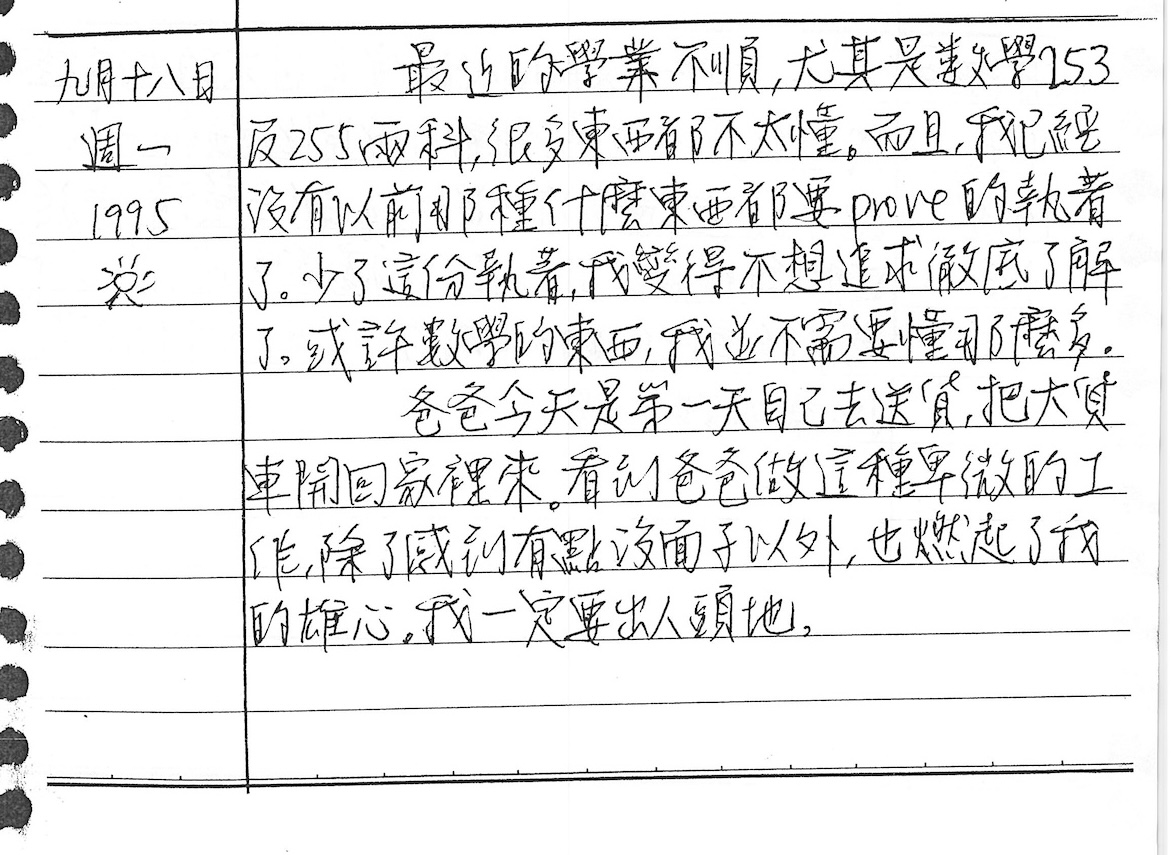 九月十八日
週一
1995
最近的學業不順,尤其是數學253
及255兩科,很多東西都不太懂。而且,我已經
沒有以前那種什麼東西都要prove的執著
了。少了這份執著,我變得不想追求徹底了解
了。或許數學的東西,我並不需要懂那麼多.
爸爸今天是第一天自己去送貨,把大貨
車開回家裡來。看到爸爸做這種卑微的工
作,除了感到有點沒面子以外,也燃起了我
的雄心。我一定要出人頭地。